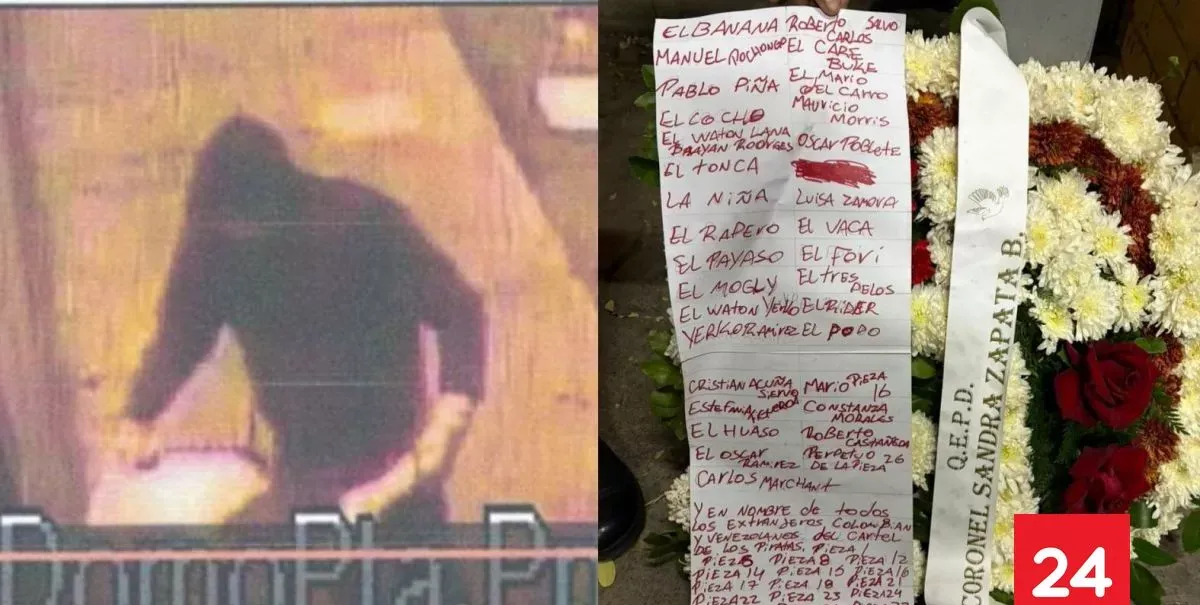 EL BANANA ROBERTO SALVO
MANUEL CARLOS
EL CARE
BUKE
PABLO PIÑA EL MARIO
DEL CARRO
EL COCHO MAURICIO
MORRIS
EL WATON LANA
BRAYAN RODRIGES OSCAR POBLETE
EL TONCA
LA NIÑA LUISA ZAMORA
EL RAPERO EL VACA
EL PAYASO EL FORI
EL MOGLY EL TRES
PELOS
EL WATON YERKO EL RIDER
YERKO RAMIREZ EL PODO
CRISTIAN ACUÑA MARIO PIEZA
SIERVO 16
ESTEFANIA CONSTANZA
MORALES
EL HUASO ROBERTO
CASTAÑEDA
EL OSCAR PERPETUO 26
RAMIREZ DE LA PIEZA
CARLOS MARCHANT
Y EN NOMBRE DE TODOS
LOS EXTRANJEROS COLOMBIAN
Y VENEZOLANOS DEL CARTEL
DE LOS PIRATAS. PIEZA 1
PIEZA 8 PIEZA 12
PIEZA 14 PIEZA 15 PIEZA 16
PIEZA 17 PIEZA 18 PIEZA 21
PIEZA 22 PIEZA 23 PIEZA 24
Q.E.P.D.
CORONEL SANDRA ZAPATA B.
24